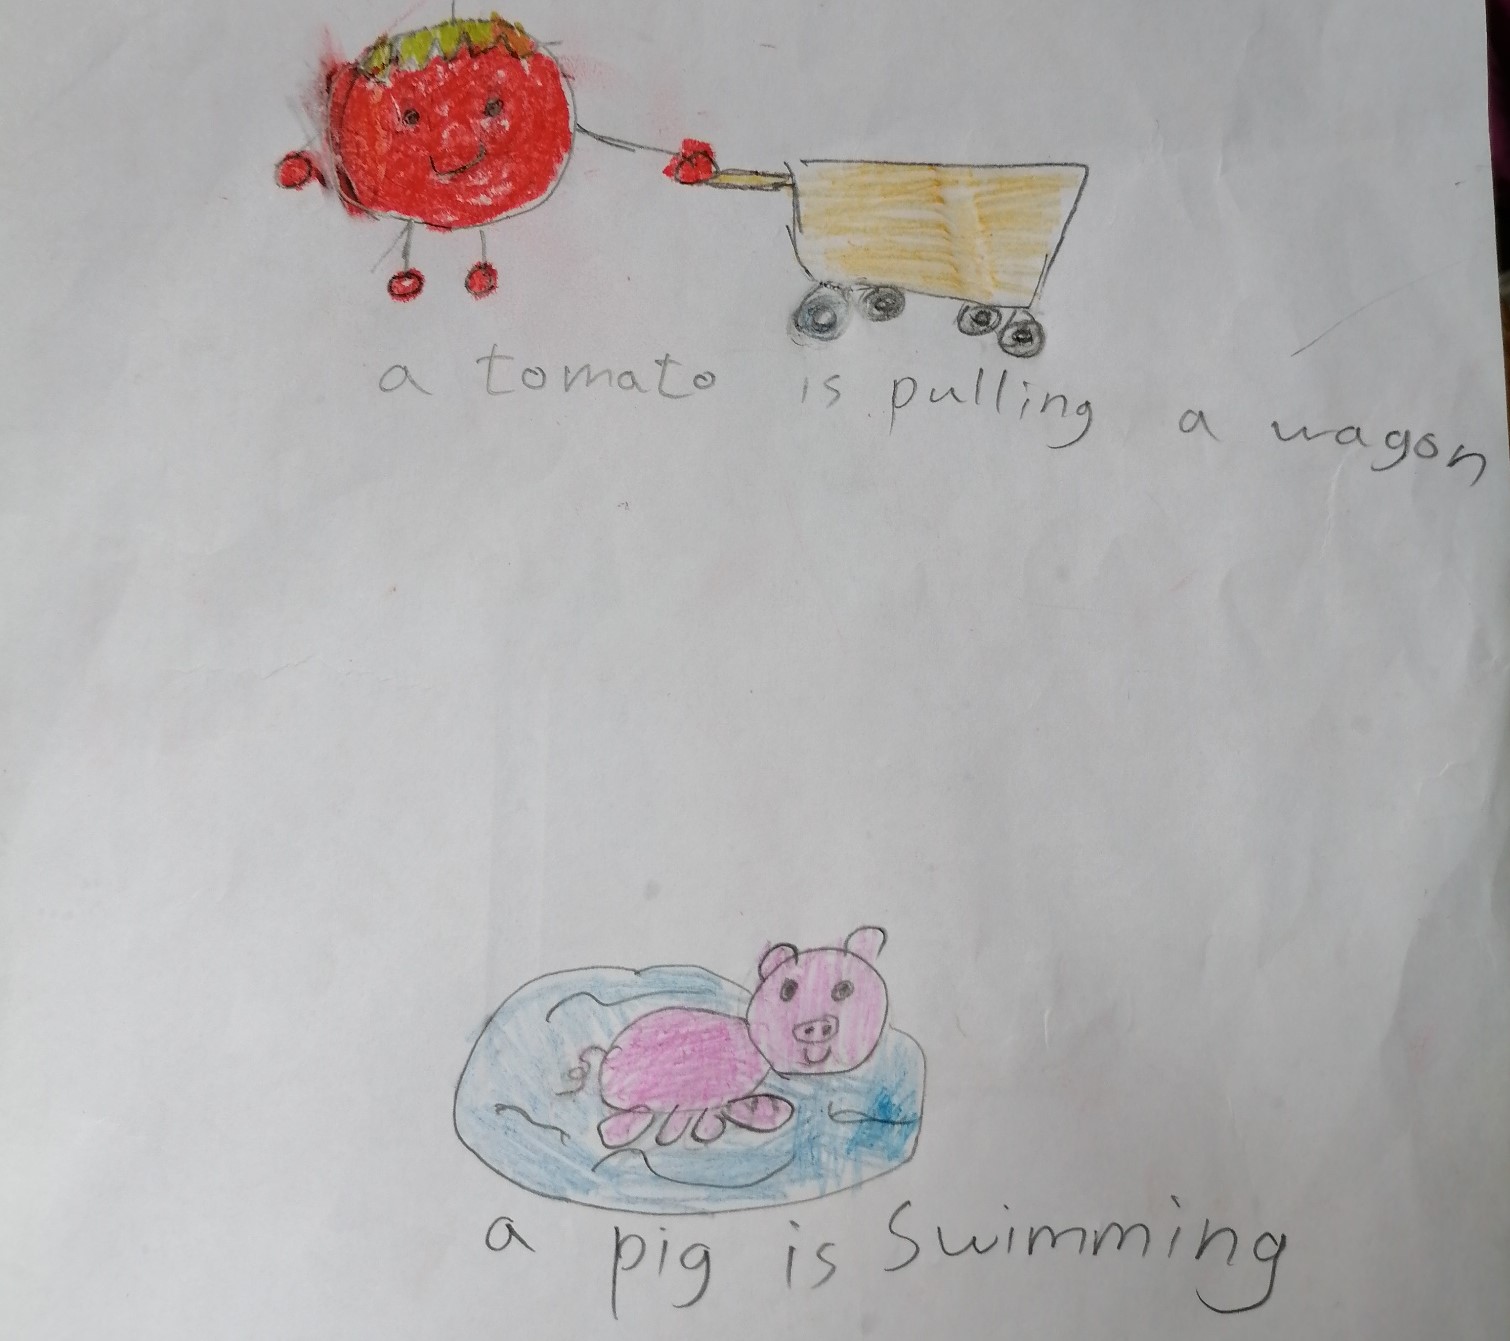 a tomato is pulling a wagon
a pig is Swimming